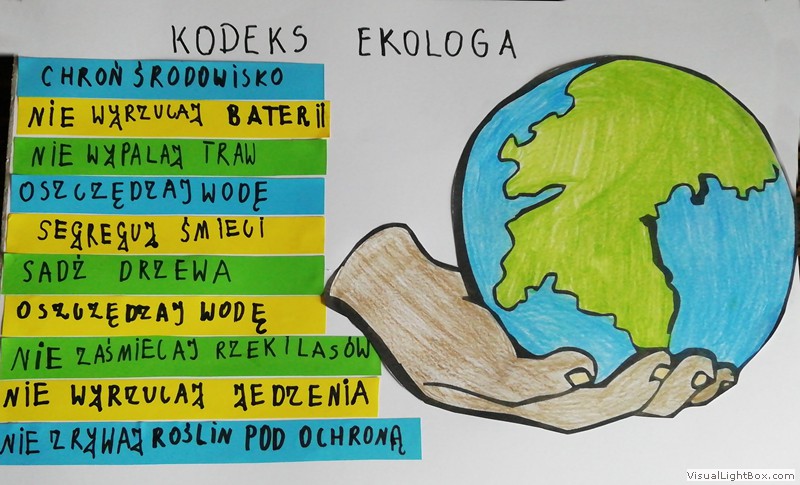 KODEKS EKOLOGA
CHROŃ ŚRODOWISKO
NIE WYRZUCAJ BATERII
NIE WYPALAJ TRAW
OSZCZĘDZAJ WODĘ
SEGREGUJ ŚMIECI
SADŹ DRZEWA
OSZCZĘDZAJ WODĘ
NIE ZAŚMIECAJ RZEK I LASÓW
NIE WYRZUCAJ JEDZENIA
NIE ZRYWAJ ROŚLIN POD OCHRONĄ
VisualLightBox.com